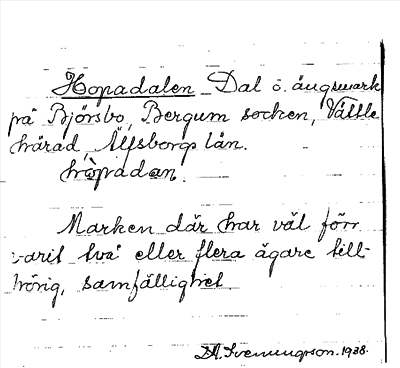 Hopadalen Dal o. ängsmark
på Björsbo, Bergum socken, Vättle
härad, Älfsborgs län.
hòpadan.
Marken där har väl förr
varit två eller flera ägare till-
hörig, samfällighet.
D.A. Svenungson. 1938.